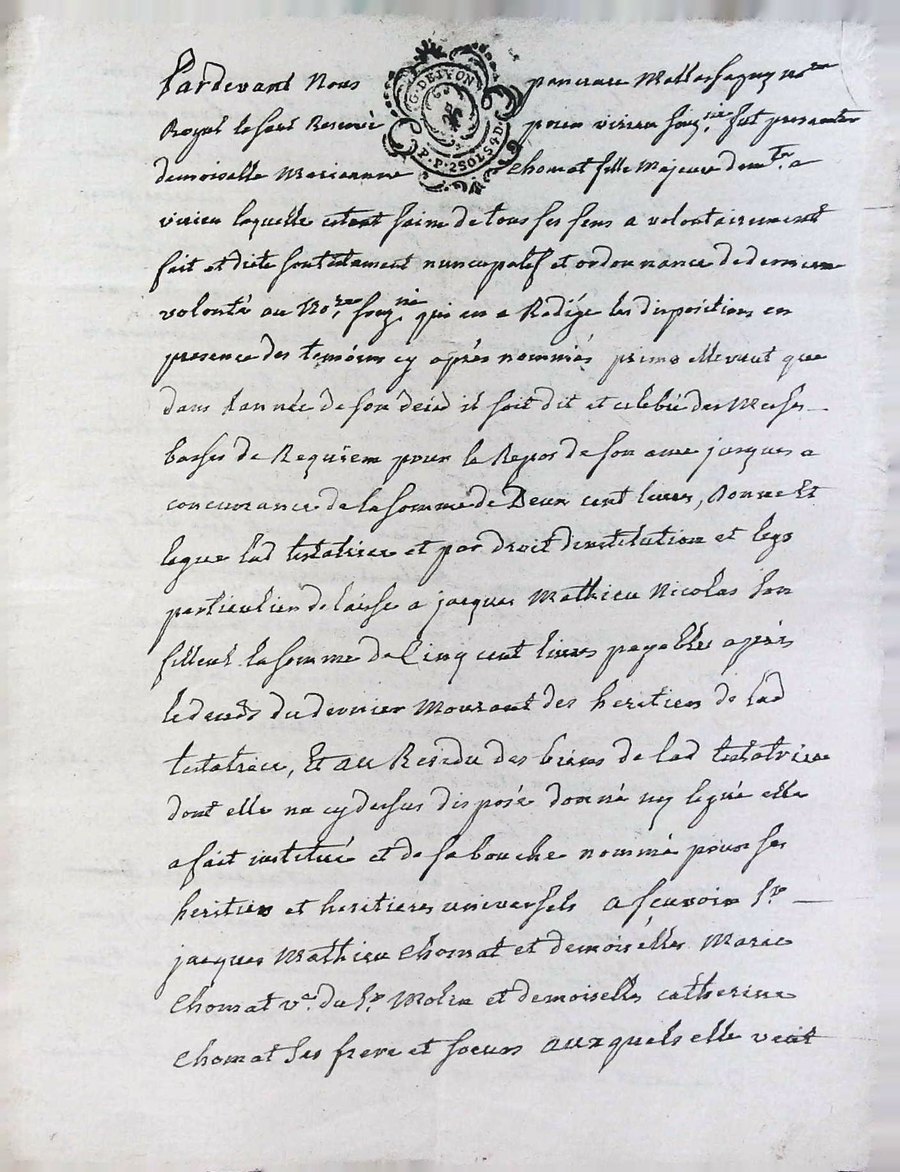 Pardevant Nous pancrace Mattassagny no.re
G. DE LYON
P. P. 2 SOLS 4 D
Royal hered Reservé pour virieu soug.né fut presente
demoiselle Marianne Chomat fille Majeure dem.te a
virieu laquelle estant saine de tous ses sens a volontairement
fait et dicté son testament nuncupatif et ordonnance de derniere
volonté au No.re soug.né qui en a Redigé les dispositions en
presence des temoins cy après nommés primo elle veut que
dans l'année de son decéd il soit dit et celebré des Messes
basses de Requiem pour le Repos de son ame jusques a
concurrance de la somme de Deux cent livres, donne Et
legue lad testatrice et par droit dinstitution et legs
particulier delaisse a jacques Mathieu Nicolas son
filleul la somme de Cinq cent livres payable après
le deceds du dernier Mourant des heritiers de lad
testatrice, Et au Residu des biens de lad testatrice
dont elle na cy dessus disposé donné ny legué elle
a fait institué et de sa bouche nommé pour ses
heritiers et heritieres universels a sçavoir S.r
jacques Mathieu Chomat et demoiselles Marie
Chomat v.e du S.r Molin et demoiselle catherine
Chomat ses frere et soeurs auxquels elle veut